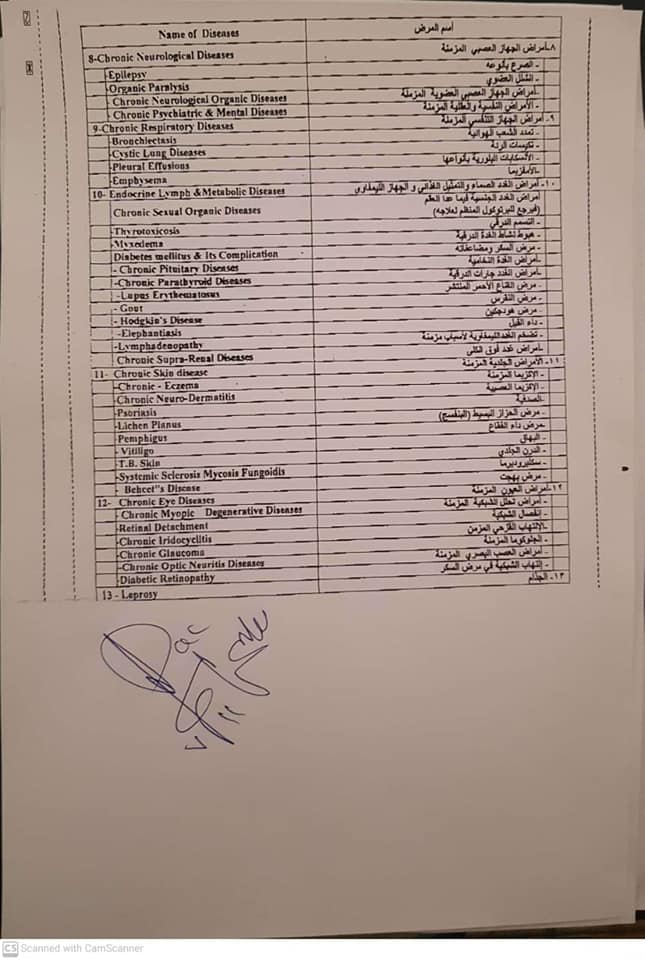 Name of Diseases	أسم المرض
8-Chronic Neurological Diseases	٨-أمراض الجهاز العصبي المزمنة
-Epilepsy	- الصرع بأنواعه
-Organic Paralysis	- الشلل العضوي
- Chronic Neurological Organic Diseases	-أمراض الجهاز العصبي العضوية المزمنة
- Chronic Psychiatric & Mental Diseases	- الأمراض النفسية والعقلية المزمنة
9-Chronic Respiratory Diseases	٩- أمراض الجهاز التنفسي المزمنة
-Bronchiectasis	- تمدد الشعب الهوائية
-Cystic Lung Diseases	- تكيسات الرئة
-Pleural Effusions	- الأنسكابات البلورية بأنواعها
-Emphysema	-الأمفزيما
10- Endocrine Lymph &Metabolic Diseases	١٠- أمراض الغدد الصماء والتمثيل الغذائي و الجهاز الليمفاوي
Chronic Sexual Organic Diseases	أمراض الغدد الجنسية فيما عدا العقم
(فيرجع للبرتوكول المنظم لعلاجه)
-Thyrotoxicosis	- التسمم الدرقي
-Myxedema	- هبوط نشاط الغدة الدرقية
Diabetes mellitus & Its Complication	- مرض السكر ومضاعفاته
- Chronic Pituitary Diseases	-أمراض الغدة النخامية
-Chronic Parathyroid Diseases	-أمراض الغدد جارات الدرقية
-Lupus Erythematosus	- مرض القناع الأحمر المنتشر
- Gout	- مرض النقرس
- Hodgkin's Disease	- مرض هودجكين
-Elephantiasis	- داء الفيل
-Lymphadenopathy	- تضخم الغدد الليمفاوية لأسباب مزمنة
Chronic Supra-Renal Diseases	-أمراض غدد فوق الكلى
11- Chronic Skin disease	١١- الأمراض الجلدية المزمنة
-Chronic - Eczema	- الإكزيما المزمنة
-Chronic Neuro-Dermatitis	- الإكزيما العصبية
-Psoriasis	-الصدفية
-Lichen Planus	- مرض الحزاز البسيط (البنفسج)
-Pemphigus	-مرض داء الفقاع
- Vitiligo	- البهاق
-T.B. Skin	- الدرن الجلدي
-Systemic Sclerosis Mycosis Fungoidis	- سكليروديرما
- Behcet"s Disease	- مرض بهجت
12- Chronic Eye Diseases	١٢-أمراض العيون المزمنة
- Chronic Myopic Degenerative Diseases	- أمراض تحلل الشبكية المزمنة
-Retinal Detachment	- إنفصال الشبكية
-Chronic Iridocyclitis	-الإلتهاب القزحي المزمن
-Chronic Glaucoma	- الجلوكوما المزمنة
-Chronic Optic Neuritis Diseases	- أمراض العصب البصري المزمنة
-Diabetic Retinopathy	- إلتهاب الشبكية في مرض السكر
13 - Leprosy	١٣- الجذام
CS Scanned with CamScanner